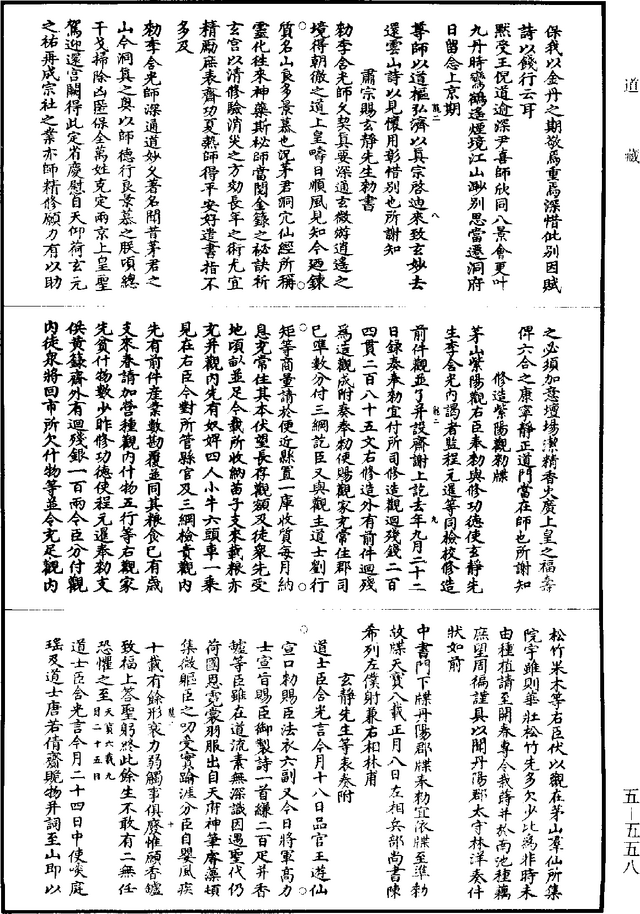 道藏
五—五五八
保我以金丹之期敬焉重焉深惜此別因賦
詩以餞行云耳
默受王倪道逾深尹喜師欣同八景會更叶
九丹時鸞鶴遙煙境江山渺別思當遷洞府
日留念上京期
尊師以道樞弘濟以真宗啓迪來致玄妙去
還雲山詩以見懷用彰惜別也所謝知
肅宗賜玄靜先生勑書
勑李含光師久契真要深通玄微游逍遙之
境得朝徹之道上皇疇日順風見知今迺鍊
質名山良多景慕也況茅君洞穴仙經所稱
靈化往來神藥斯秘師當閱金籙之秘訣祈
玄宮以清修驗消灾之方効長年之術尤宜
精勵庶表齊功夏熱師得平安好遣書指不
多及
勑李含光師深通道妙久著名聞昔茅君之
山今洞真之奧以師德行良景慕之朕頃總
干戈掃除凶孽保全萬姓克定兩京上皇聖
駕迎還宮闕得此定省慶慰自天仰荷玄元
之祐再成宗社之業亦師精修願力有以助
之必須加意壇場潔精香火廣上皇之福壽
俾六合之康寧靜正道門當在師也所謝知
修造紫陽觀勑牒
茅山紫陽觀右臣奉勑與修功德使玄靜先
生李含光內謁者監程元暹等同檢校修造
前件觀並了并設齋謝上訖去年九月二十二
日錄奏奉勑宜付所司修造觀迴殘錢二百
四貫二百八十五文右修造外有前件迴殘
爲造觀成附奏奉勑便賜觀家充常住郡司
已準數分付三綱訖臣又與觀主道士劉行
矩等商量請於便近縣置一庫收質每月納
息充常住其本伏望長存觀額及徒衆先受
地頃畝並足今載所收納苗子支來載粮亦
充并觀內先有奴婢四人小牛六頭車一乘
見在右臣今對所管縣官及三綱檢責觀內
先有前件產業數勘覆並同其粮食已有歲
支來春請加營種觀內什物五行等右觀家
先貧什物數少昨修功德使程元暹奉勑支
供黃籙齋外有迴殘銀一百兩令臣分付觀
內徒衆將回市所欠什物等並令充足觀內
松竹果木等右臣伏以觀在茅山羣仙所集
院宇雖則華壯松竹先多欠少比爲非時未
由種植請至開春專令栽蒔并於南池種藕
庶望周徧謹具以聞丹陽郡太守林洋奏件
狀如前
中書門下牒丹陽郡牒奉勑宜依牒至準勑
故牒天寶八載正月八日左相兵部尚書陳
希列左僕射兼右相林甫
玄靜先生等表奏附
道士臣含光言今月十八日品官王遊仙
宣口勑賜臣法衣六副又今日將軍高力
士宣旨賜臣御製詩一首縑二百疋并香
爐等臣雖在道流素無深識因遇聖代仍
荷國恩霓裳羽服出自天府神筆膚藻頓
集微軀臣之叨受實踰涯分臣自嬰風疾
十載有餘形衰力弱觸事俱廢惟願香爐
致福上答聖躬終此餘生不敢有二無任
恐懼之至天寶六載九月二十五日
道士臣含光言今月二十四日中使啖庭
瑤及道士唐若倩齋龍物并詞至山即以